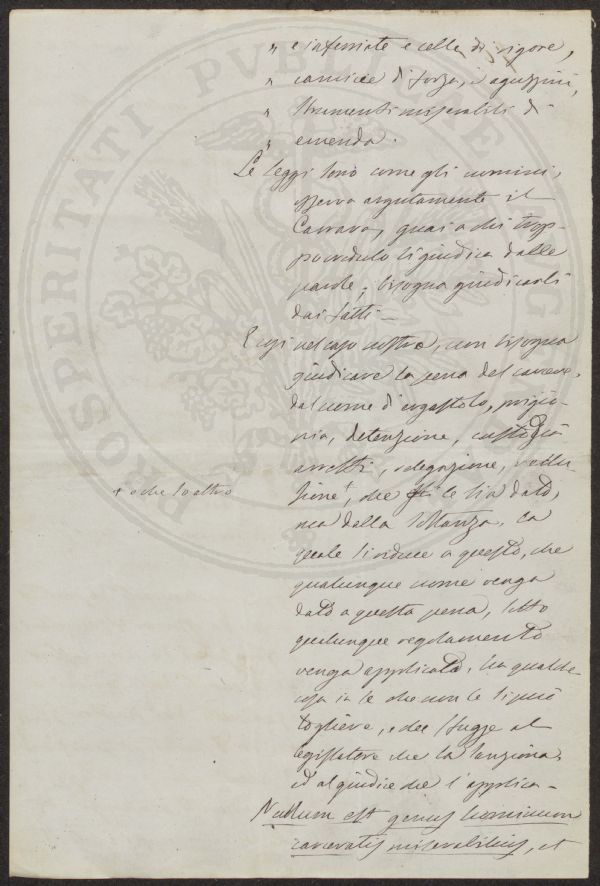 " e inferriate e celle di rigore,
" camicie di forza, e aguzzini,
" strumenti miserabili di
" emenda.
Le leggi sono come gli uomini,
osserva argutamente il
Carrara, quasi a chi trop-
po credulo li giudica dalle
parole; bisogna giudicarli
dai fatti —
E così nel caso nostro, non bisogna
giudicare la pena del carcere,
dal nome d'ergastolo, prigio-
nia, detenzione, custodia
arresti, relegazione, reclu-
sione +, che le sia dato,
+ o che so altro
ma dalla sostanza. La
quale si riduce a questo, che
qualunque nome venga
dato a questa pena, sotto
qualunque regolamento
venga applicata, ha qualche
cosa in se che non le si può
togliere, e che sfugge al
legislatore che la sanziona,
ed al giudice che l'applica —
Nullum est genus hominum
carceratis miserabilius, et
PROSPERITATI PUBLICAE